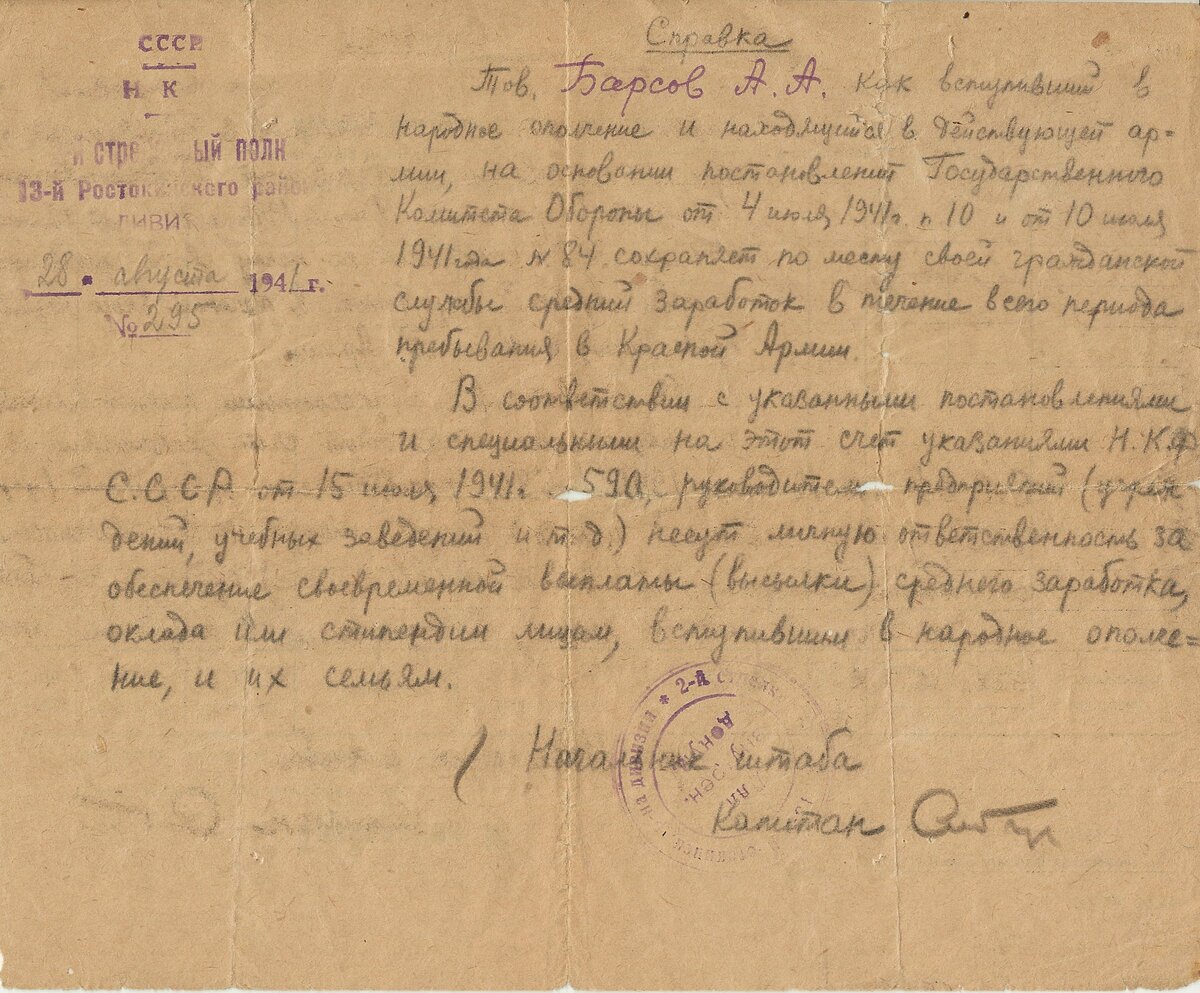 СССР
Н К
й стре ный полк
13-й Ростокинского рай
ДИВИ
28 августа 1941 г.
№ 295
Справка
Тов. Барсов А. А. как вступивший в
народное ополчение и находящийся в действующей ар=
мии, на основании постановлений Государственного
Комитета Обороны от 4 июля 1941г. № 10 и от 10 июля
1941 года № 84 сохраняет по месту своей гражданской
службы средний заработок в течение всего периода
пребывания в Красной Армии.
В соответствии с указанными постановлениями
и специальными на этот счет указаниями Н.К.Ф
С.С.С.Р. от 15 июля 1941г. 590, руководители предприятий (учреж
дений, учебных заведений и т.д.) несут личную ответственность за
обеспечение своевременной выплаты (высылки) среднего заработка,
оклада или стипендии лицам, вступившим в народное ополче=
ние, и их семьям.
* 2-й
на дивизии
Начальник штаба
Капитан